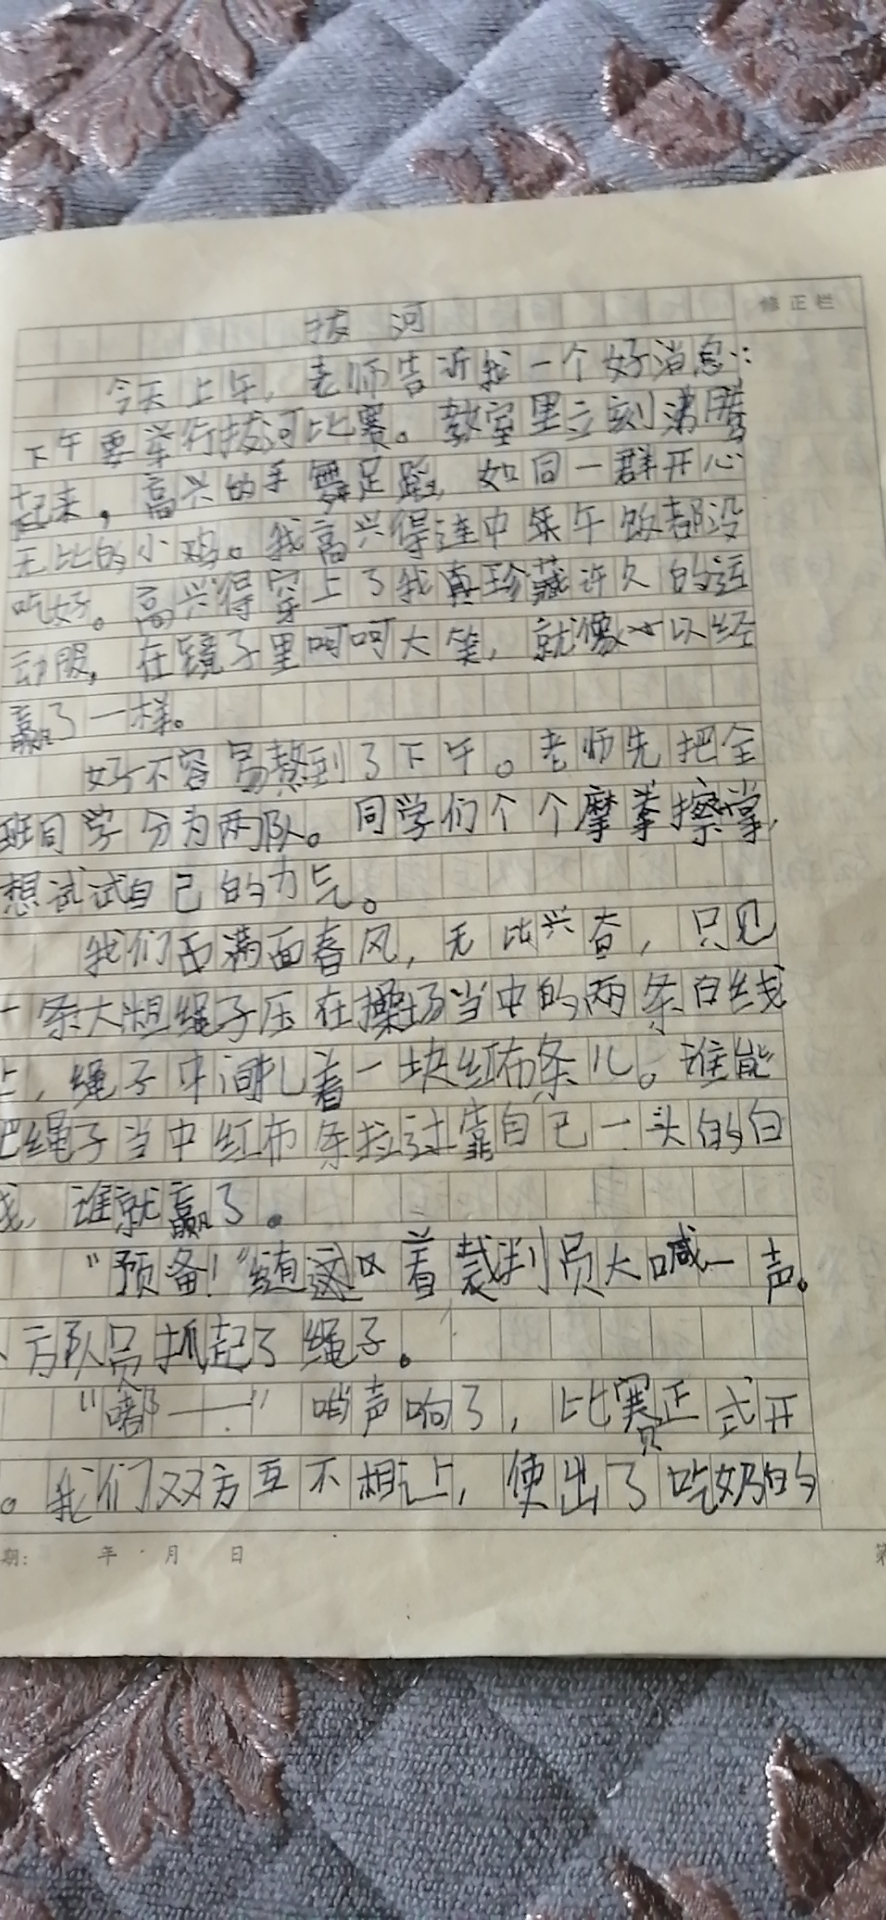 修正栏
拔河
今天上午，老师告诉我一个好消息：
下午要举行拔河比赛。教室里立刻沸腾
起来，高兴的手舞足蹈，如同一群开心
无比的小鸡。我高兴得连中午饭都没
吃好。高兴得穿上了我珍藏许久的运
动服，在镜子里呵呵大笑，就像以经
赢了一样。
好不容易熬到了下午。老师先把全
班同学分为两队。同学们个个摩拳擦掌，
想试试自己的力气。
我们面满面春风，无比兴奋，只见
一条大粗绳子压在操场当中的两条白线
上，绳子中间扎着一块红布条儿。谁能
把绳子当中红布条拉过靠自己一头的白
线，谁就赢了。
“预备！”随着裁判员大喊一声。
方队员抓起了绳子。
“嘟——”哨声响了，比赛正式开
。我们双方互不相让，使出了吃奶的
期： 年 月 日
第